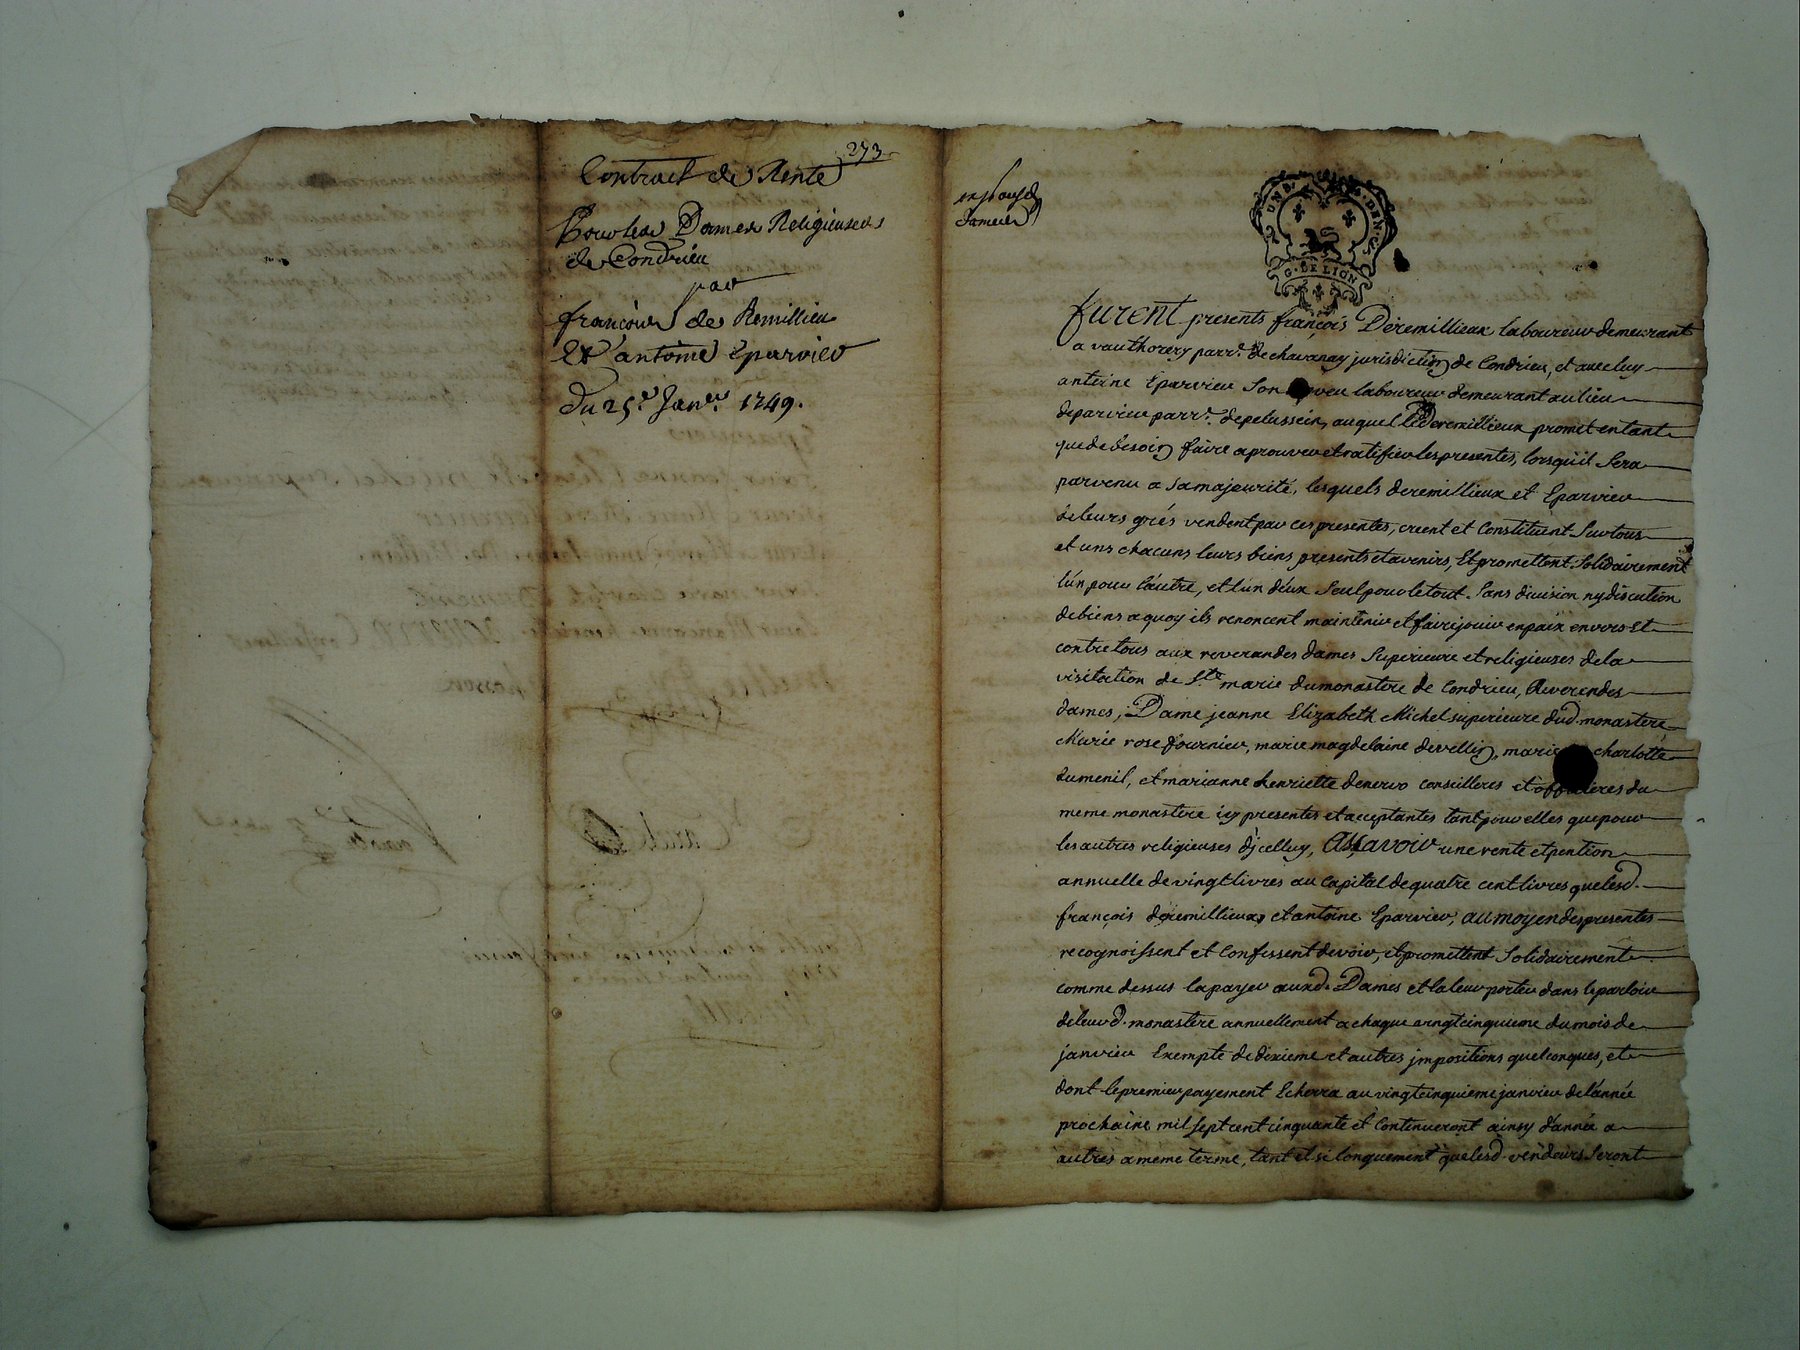 273
Contract de Rente
Pour les Dames Religieuses
de Condrieu
par
françois de Remillieu
Et antoine Eparvier
Du 25e. Janer. 1749.
G. DE LION
furent presents françois Deremillieux laboureur demeurant
a vauthorery parre. de chavanay jurisdiction de Condrieu, et avec luy
antoine Eparvier Son neveu laboureur demeurant au lieu
de parvieu parre. de pelussein, auquel led. Deremillieux promet en tant
que de besoin faire aprouver et ratifier les presentes, lorsqu'il Sera
parvenu a Sa majeurité, lesquels deremillieux et Eparvier
de leurs grés vendent par ces presentes, creent et Constituent Sur tous
et uns chacuns leurs biens presents et avenirs, Et promettent Solidairement
l'un pour l'autre, et l'un d'eux Seul pour le tout Sans division ny discution
de biens a quoy ils renoncent maintenir et faire jouir en paix envers Et
contre tous aux reverandes dames Superieure et religieuzes de la
visitation de Ste. marie du monastere de Condrieu, Reverendes
dames, Dame jeanne Elizabeth Michel superieure dud. monastere,
Marie rose fournier, marie magdelaine devellin, marie charlotte
dumenil, et marianne henriette denervo conseilleres et officieres du
meme monastere icy presentes et acceptantes tant pour elles que pour
les autres religieuses d'jcelluy, Assavoir une rente et pention
annuelle de vingt livres au Capital de quatre cent livres que lesd.
françois deremillieux et antoine Eparvier, au moyen des presentes
recognoissent et Confessent devoir, et promettent Solidairement
comme dessus la payer auxd. Dames et la leur porter dans le parloir
de leurd. monastere annuellement a chaque vingt cinquieme du mois de
janvier Exempte de dixieme et autres jmpositions quelconques, et
dont le premier payement Echerra au vingt cinquieme janvier de l'année
prochaine mil sept cent cinquante et Continueront ainsy d'année a
autres a meme terme, tant et si longuement que lesd. vendeurs Seront